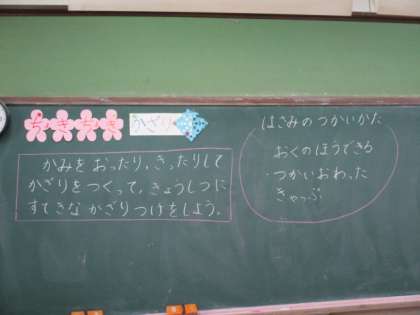 ちきちき
かざり
かみを おったり、きったりして
かざりをつくって、きょうしつに
すてきな かざりつけをしよう。
はさみの つかいかた
おくのほうできる
・つかいおわったら
きゃっぷ